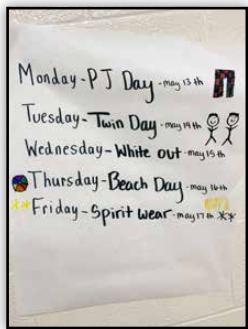 Monday - PJ Day - may 13th
Tuesday - Twin Day - may 14th
Wednesday - White out - may 15th
Thursday - Beach Day - may 16th
Friday - Spirit wear - may 17th